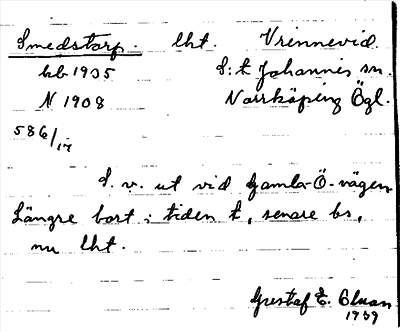 Smedstorp. lht. Vrinnevid.
kb 1935 S:t Johannis sn.
N 1908 Norrköping Ögl.
586/17
S. v. ut vid Gamla Ö-vägen
Längre bort i tiden t, senare bs,
nu lht.
Gustaf E.
1939